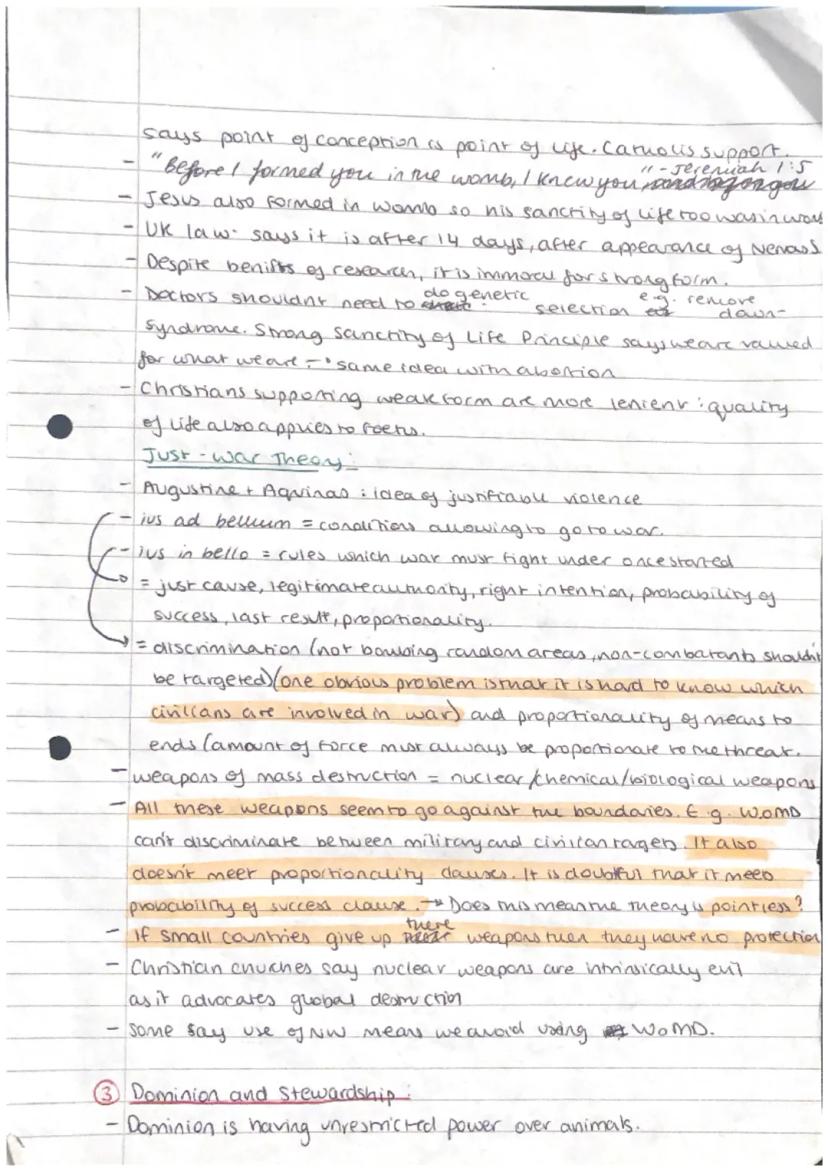 says point of conception is point of life. Catholis support.
- "Before I formed you in the womb, I knew you," - Jeremiah 1:5
- Jesus also formed in womb so his sanctity of life too was in wom
- UK law: says it is after 14 days, after appearance of Nervous S
- Despite benifts of research, it is immoral for strong form.
- Doctors shouldnt need to do genetic selection e.g. remove down-
syndrome. Strong Sanctity of Life Principle says we are valued
for what we are - same idea with abortion
- Christians supporting weak form are more lenient : quality
of life also applies to foetus.
Just-War Theory:
- Augustine + Aquinas : idea of justifiable violence
- ius ad bellum = conditions allowing to go to war.
- ius in bello = rules which war must fight under once started
= just cause, legitimate authority, right intention, probability of
success, last result, proportionality.
= discrimination (not bombing random areas, non-combatants shouldn't
be targeted) (one obvious problem is that it is hard to know which
civilians are involved in war) and proportionality of means to
ends (amount of force must always be proportionate to the threat.
- weapons of mass destruction = nuclear/chemical/biological weapons
- All these weapons seem to go against the boundaries. E.g. WOMD
can't discriminate between military and civilian targets. It also
doesn't meet proportionality clauses. It is doubtful that it meets
probability of success clause. → Does this mean the theory is pointless?
- If small countries give up there weapons then they have no protection
- Christian chuches say nuclear weapons are intrinsically evil
as it advocates global destruction
- Some say use of NW means we avoid using WoMD.
③ Dominion and Stewardship:
- Dominion is having unrestricted power over animals.